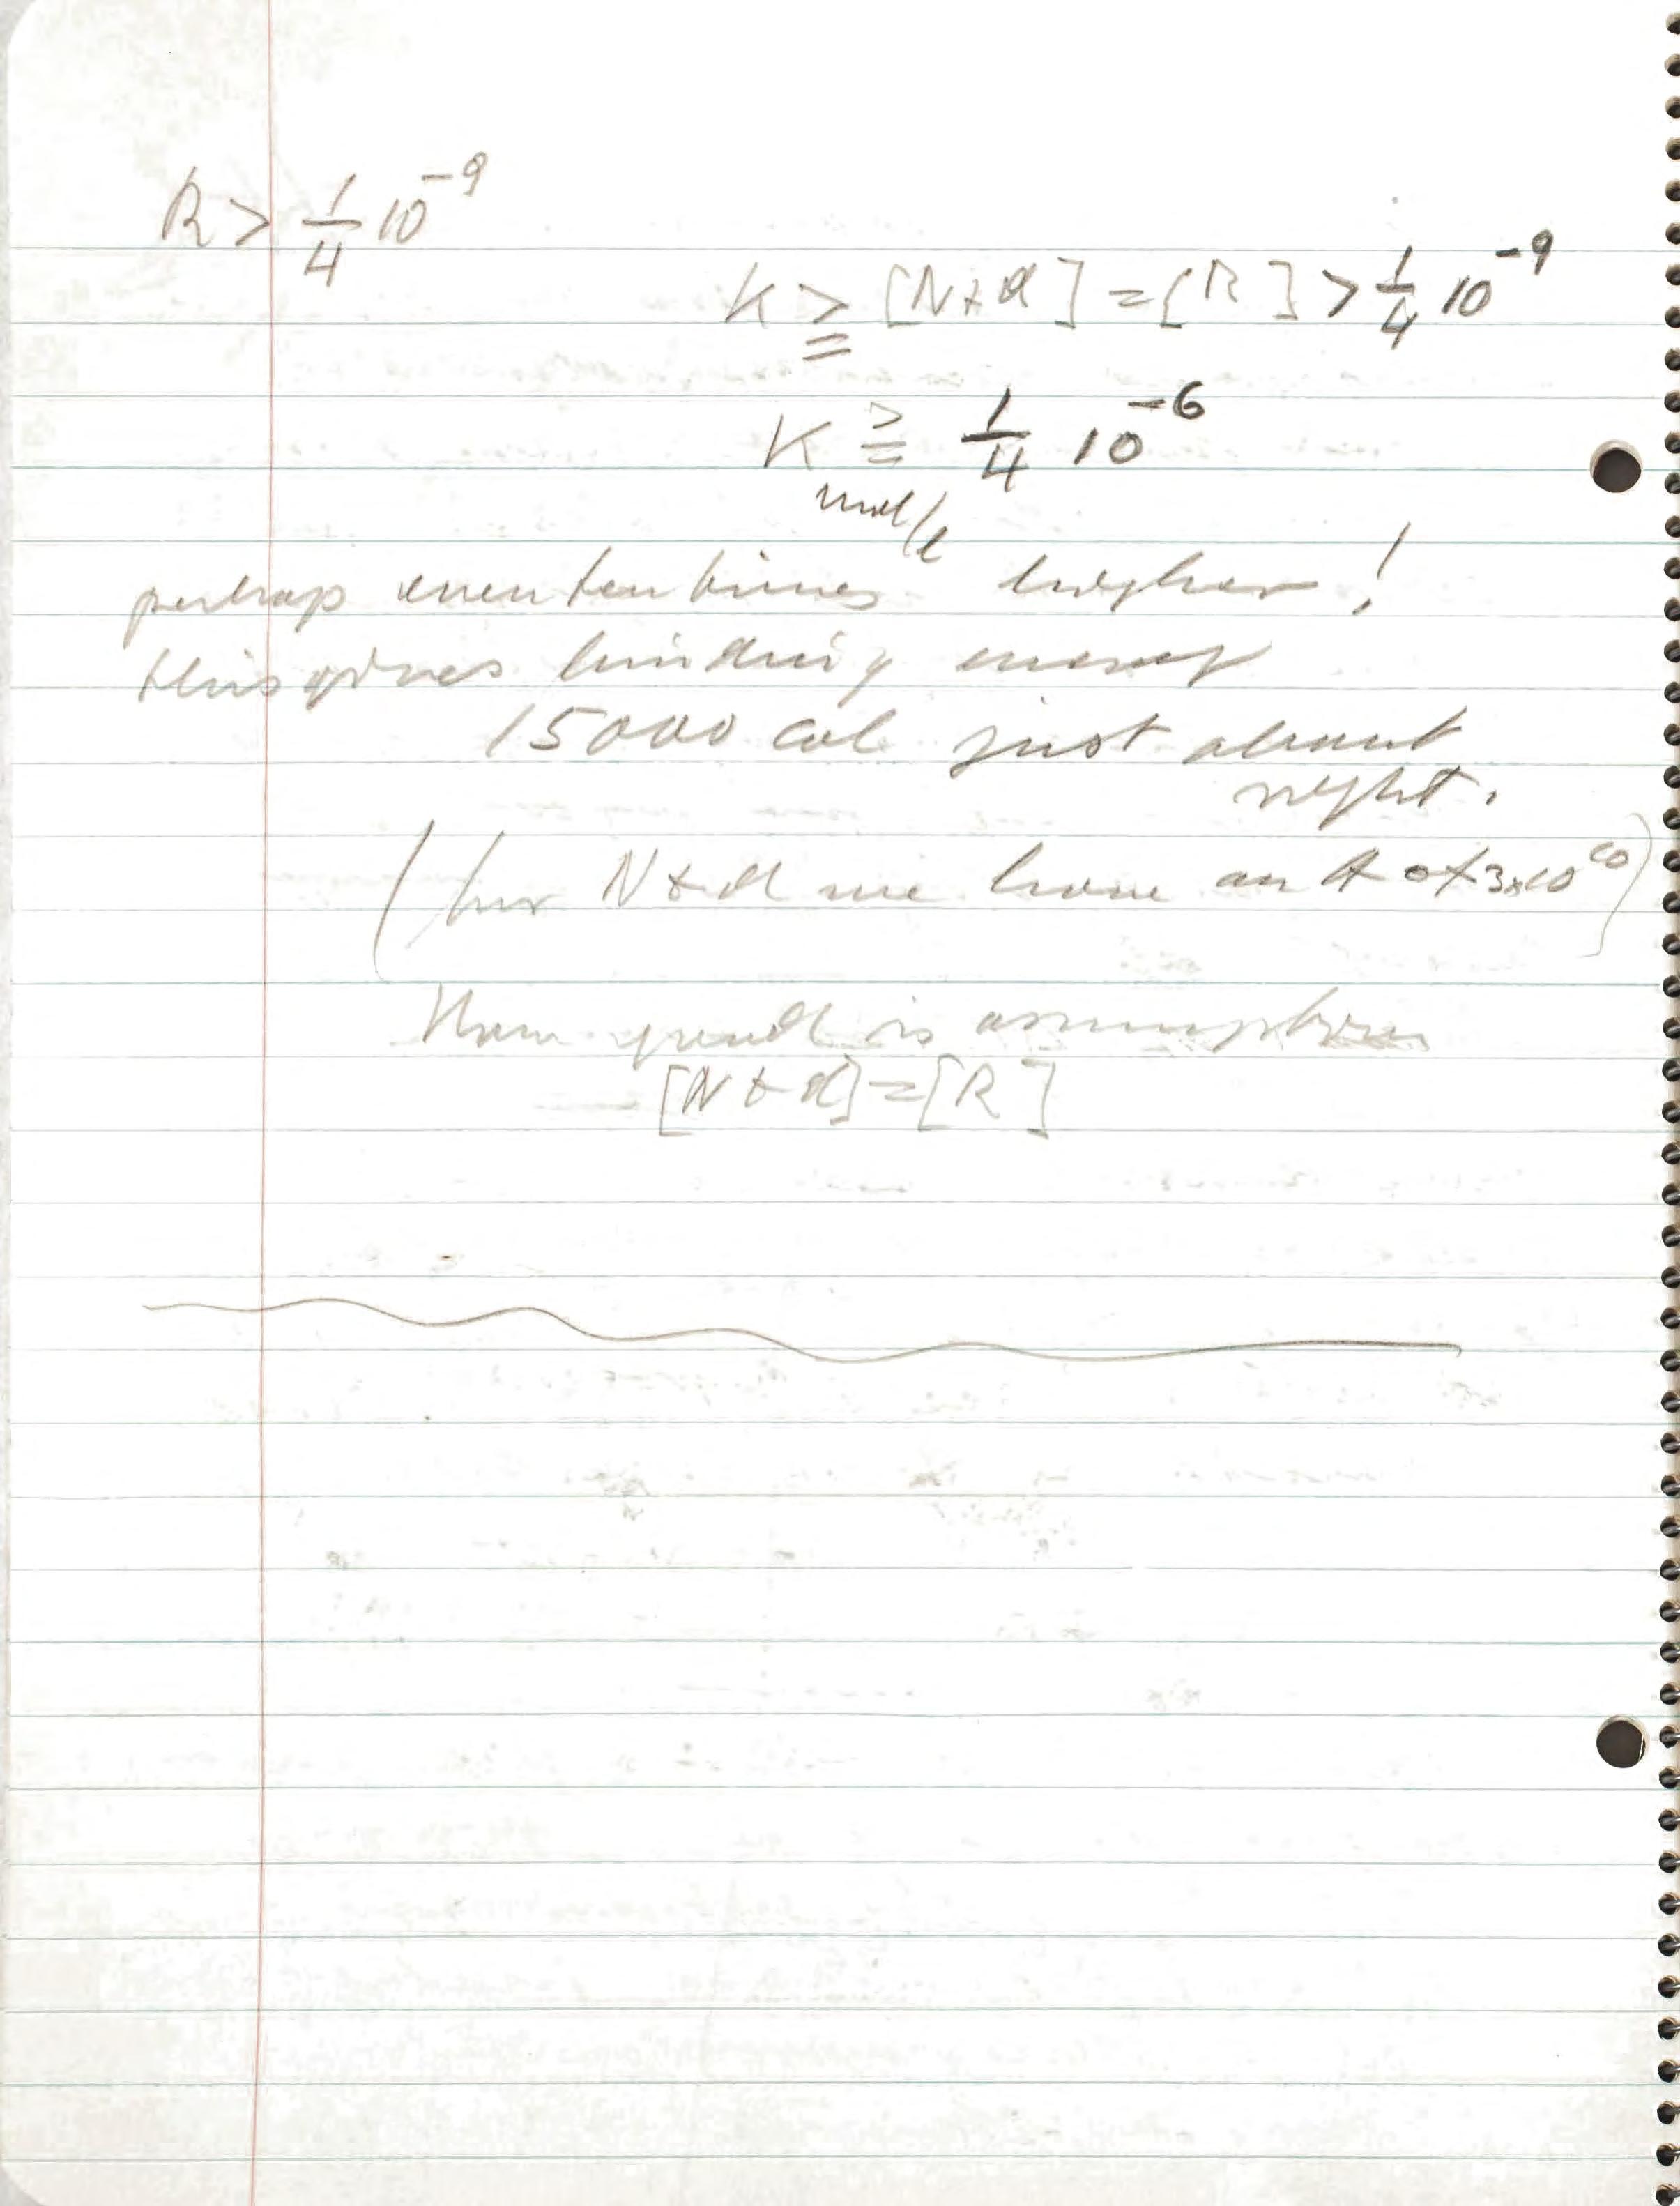 R > 1/4 10^-9
K ≧ [N+d] = [R] > 1/4 10^-9
K ≧ 1/4 10^-6
mol/l
perhap even ten times higher!
this gives binding energy
15000 cal just about
right.
(for N+d we have an A of 3x10^10)
How good is assumption
[N+d]=[R]